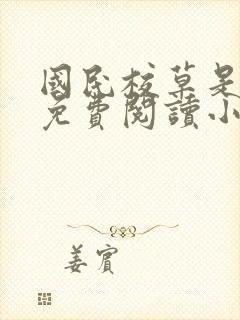 國民校草是
免費閱讀小
姜賓